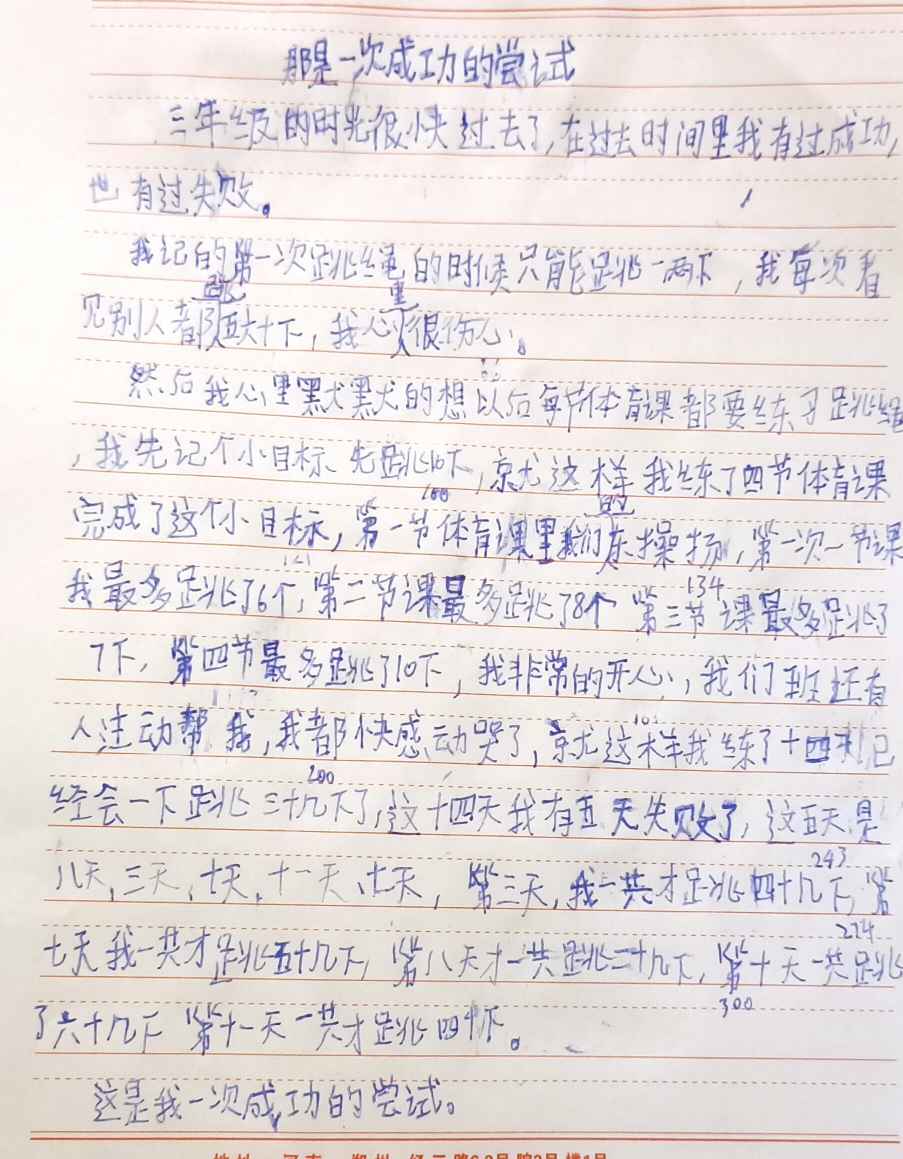 那是一次成功的尝试
三年级的时光很快过去了,在过去时间里我有过成功,
也有过失败。
我记的第一次跳绳的时候只能跳一两下,我每次看
跳 里
见别人都五六十下,我心很伤心。
然后我心里默默的想以后每节体育课都要练习跳绳
,我先记个小目标、先跳10下,就这样我练了四节体育课
100 的
完成了这个小目标,第一节体育课里我们在操场,第一次一节课
121 134
我最多跳了6个,第二节课最多跳了8个 第三节课最多跳了
7下,第四节最多跳了10下,我非常的开心,我们班还有
人主动帮我,我都快感动哭了,就这样我练了十四天已
200
经会一下跳三十几下了,这十四天我有五天失败了,这五天是
243
八天、三天、七天、十一天、七天,第三天,我一共才跳四十几下,第
224
七天我一共才跳五十几下,第八天才一共跳二十几下,第十天一共跳
300
了六十几下 第十一天一共才跳四十下。
这是我一次成功的尝试。